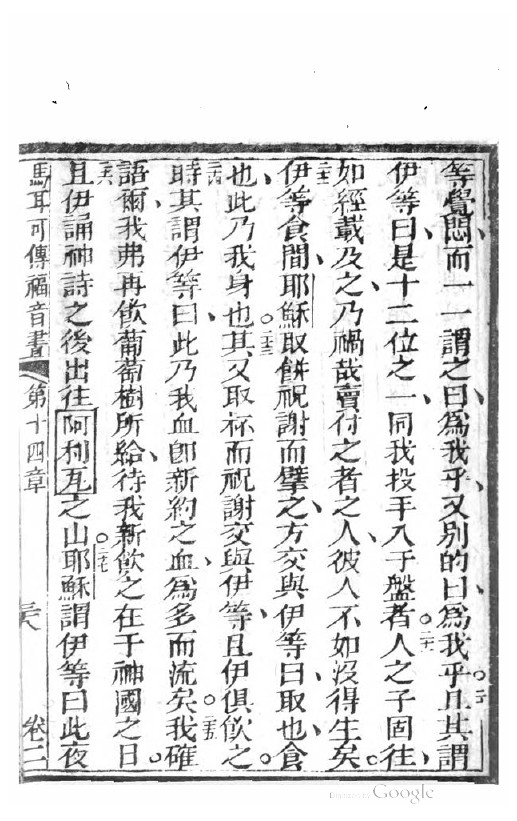 等覺悶而一一謂之曰、爲我乎、又別的曰、爲我乎。二十且其謂
伊等曰、是十二位之一、同我投手入于盤者。二十一人之子固往、
如經載及之、乃禍哉賣付之者之人、彼人不如沒得生矣。
二十二伊等食間、耶穌取餅祝謝而擘之、方交與伊等曰、取也、食
也、此乃我身也。二十三其又取杯而祝謝、交與伊等、且伊俱飲之。
二十四時其謂伊等曰、此乃我血卽新約之血、爲多而流矣。二十五我確
語爾、我弗再飲葡萄樹所給、待我新飲之在于神國之日。
二十六且伊誦神詩之後、出往阿利瓦之山。二十七耶穌謂伊等曰、此夜
馬耳可傳福音書 第十四章 三八 卷二
Digitized by Google